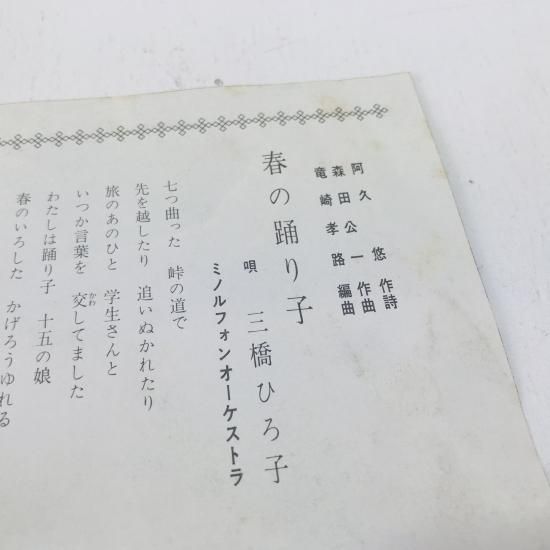 阿久悠 作詩
森田公一 作曲
竜崎孝路 編曲
春の踊り子
唄 三橋ひろ子
ミノルフォンオーケストラ
七つ曲った 峠の道で
先を越したり 追いぬかれたり
旅のあのひと 学生さんと
いつか言葉を 交してました
かわ
わたしは踊り子 十五の娘
春のいろした かげろうゆれる